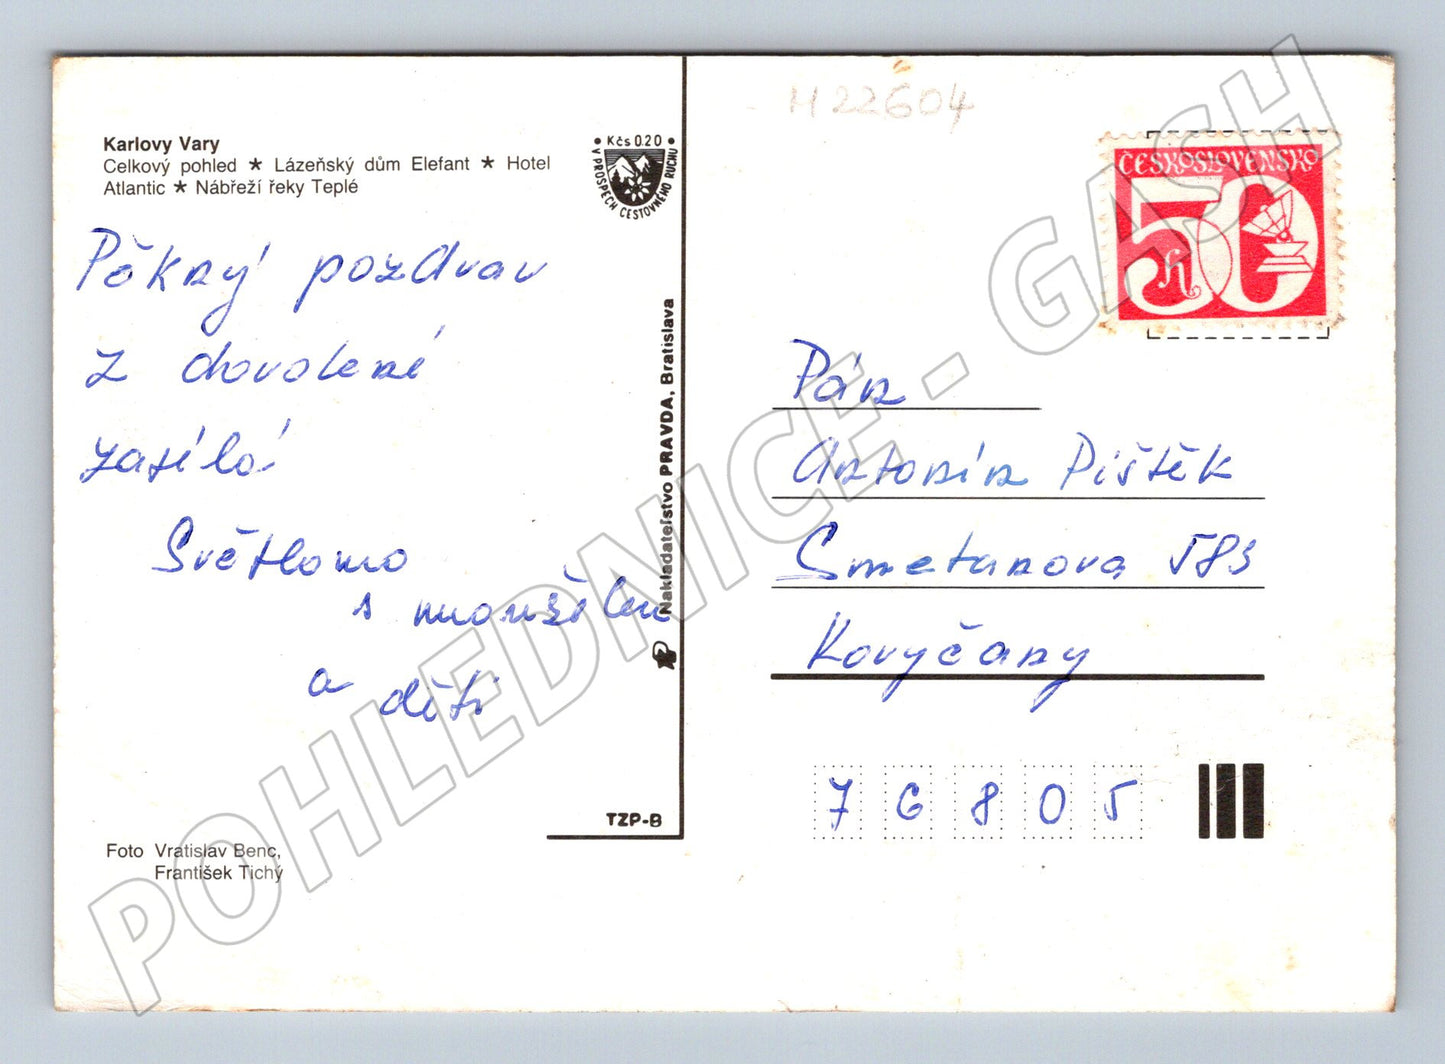 Karlovy Vary
Celkový pohled ★ Lázeňský dům Elefant ★ Hotel
Atlantic ★ Nábřeží řeky Teplé
• Kčs 0.20 •
V PROSPĚCH CESTOVNÉHO RUCHU
Pěkný pozdrav
z dovolené
zasílá
Světlana
s manželem
a děti
Foto Vratislav Benc,
František Tichý
TZP-B
Nakladateľstvo PRAVDA, Bratislava
M22604
ČESKOSLOVENSKO
50 h
Pán
Antonín Pištěk
Smetanova 583
Koryčany
76805
POHLEDNICE - GASH